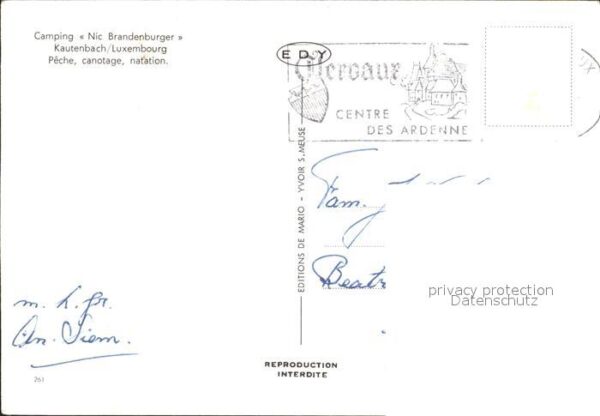 Camping « Nic Brandenburger »
Kautenbach/Luxembourg
Pêche, canotage, natation.
EDY
Clervaux
CENTRE
DES ARDENNE
EDITIONS DE MARIO - YVOIR S. MEUSE
Fam.
Beatr
privacy protection
Datenschutz
m. h. gr.
An. Siem.
REPRODUCTION
INTERDITE
261